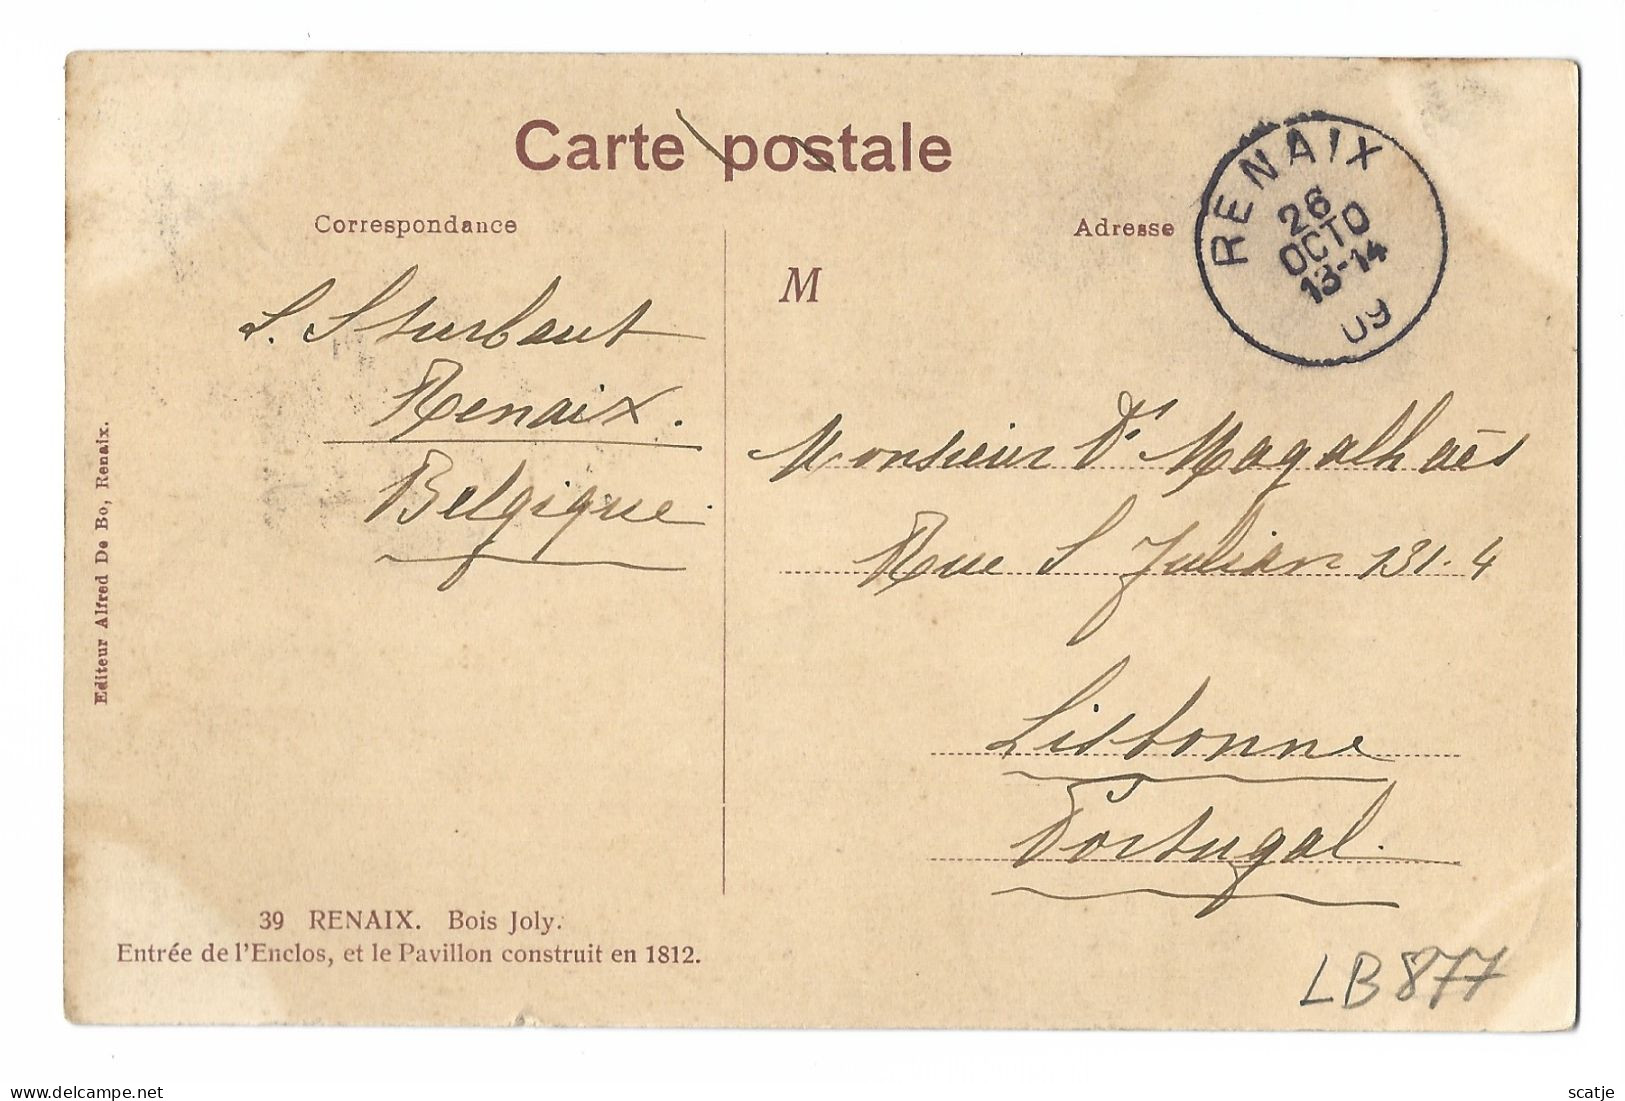 Carte postale
Correspondance
Adresse
RENAIX
26
OCTO
13-14
09
M
S. Sturbaut
Renaix.
Belgique.
Monsieur Dr Magalhaès
Rue S Julian 131.4
Lisbonne
Portugal.
Editeur Alfred De Bo, Renaix.
39 RENAIX. Bois Joly.
Entrée de l'Enclos, et le Pavillon construit en 1812.
LB877
www.delcampe.net
scatje